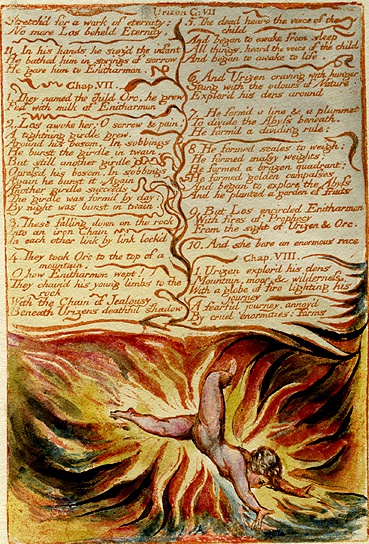 Urizen C: VII
Stretch'd for a work of eternity;
No more Los beheld Eternity.
11. In his hands he seiz'd the infant
He bathed him in springs of sorrow
He gave him to Enitharmon.
Chap. VII.
1. They named the child Orc, he grew
Fed with milk of Enitharmon
2. Los awoke her; O sorrow & pain!
A tight'ning girdle grew,
Around his bosom. In sobbings
He burst the girdle in twain,
But still another girdle
Opress'd his bosom. In sobbings
Again he burst it. Again
Another girdle succeeds
The girdle was form'd by day;
By night was burst in twain.
3. These falling down on the rock
Into an iron Chain
In each other link by link lock'd
4. They took Orc to the top of a
mountain.
O how Enitharmon wept!
They chain'd his young limbs to the
rock
With the Chain of Jealousy
Beneath Urizens deathful shadow
5. The dead heard the voice of the
child
And began to awake from sleep
All things. heard the voice of the child
And began to awake to life.
6. And Urizen craving with hunger
Stung with the odours of Nature
Explor'd his dens around
7. He form'd a line & a plummet
To divide the Abyss beneath.
He form'd a dividing rule:
8. He formed scales to weigh;
He formed massy weights;
He formed a brazen quadrant;
He formed golden compasses
And began to explore the Abyss
And he planted a garden of fruits
9. But Los encircled Enitharmon
With fires of Prophecy
From the sight of Urizen & Orc.
10. And she bore an enormous race
Chap. VIII.
1. Urizen explor'd his dens
Mountain, moor, & wilderness,
With a globe of fire lighting his
journey
A fearful journey, annoy'd
By cruel enormities: forms